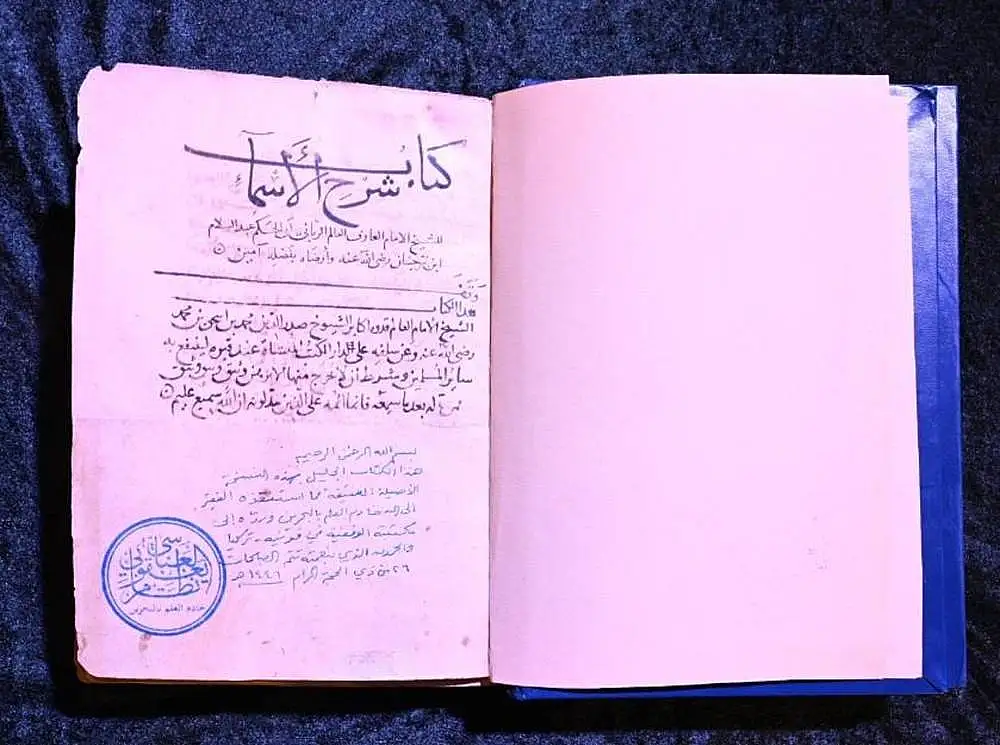 كتاب
شَرْحِ الأَسْمَاء
للشيخ الامام العارف العالم الرباني ابي الحكم عبد السلام
ابن برجان رضي الله عنه وأرضاه بفضله آمين
وَقَفَ
هذا الكتاب
الشيخ الامام العالم قدوة اكابر الشيوخ صدر الدين محمد بن اسحق بن محمد
رضي الله عنه وعن سلفه على دار الكتب المنشاة عند قبره لينتفع به
ساير المسلمين وشرط ان لا يخرج منها الا برهن وثيق
بعد ما سمعه فانما اثمه على الذين يبدلونه ان الله سميع عليم
بسم الله الرحمن الرحيم
هذا الكتاب الجليل بهذه النسخة
الأصيلة العتيقة مما استنقذه الفقير
إلى الله خادم العلم بالبحرين ورده إلى
مكتبته الوقفية في قونية - تركيا
والحمد لله الذي بنعمته تتم الصالحات
٢٦ من ذي الحجة الحرام ١٤٤٦ هـ
نظام يعقوبي العباسي
خادم العلم بالبحرين